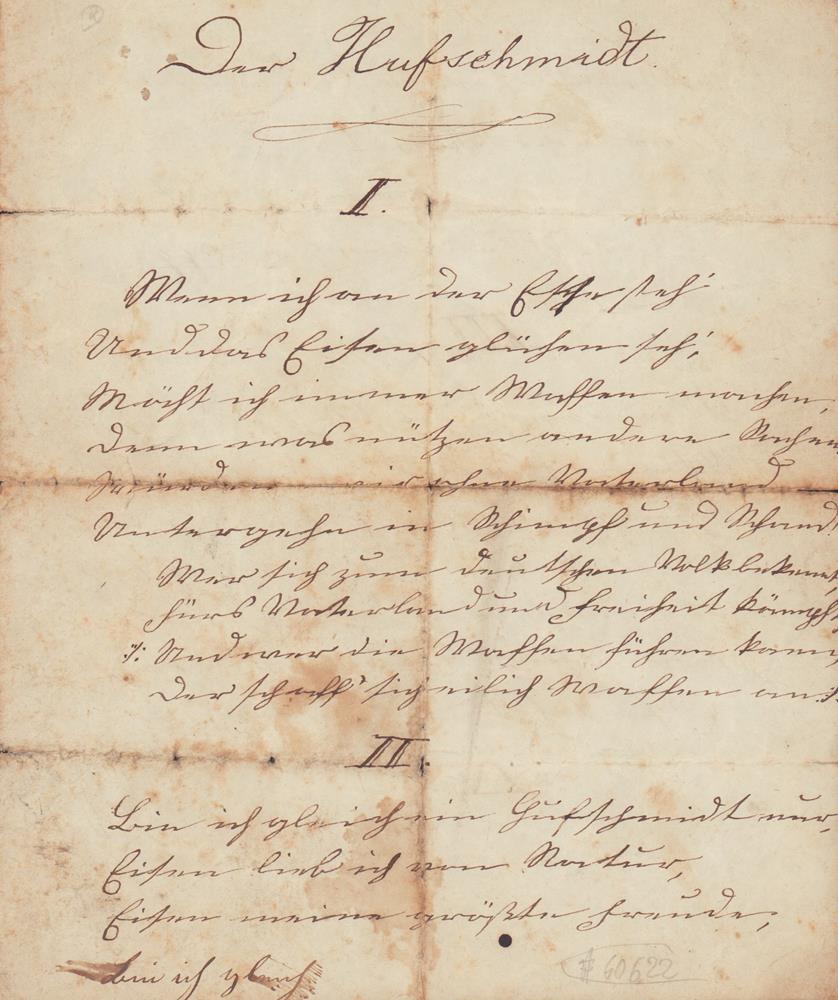 Der Hufschmidt.
I.
Wenn ich an der Esse steh'
Und das Eisen glühen seh',
Möcht ich immer Waffen machen,
Denn was nützen andere Sachen
Würden wir ohne Vaterland
Untergehn in Schimpf und Schand!
Wer sich zum deutschen Volk bekennt,
Fürs Vaterland und Freiheit kämpft
:/: Und wer die Waffen führen kann,
Der schaff' sich eilich Waffen an :/:
II.
Bin ich gleich ein Hufschmidt nur,
Eisen lieb ich von Natur,
Eisen meine größte Freude,
bin ich gleich
# 60622